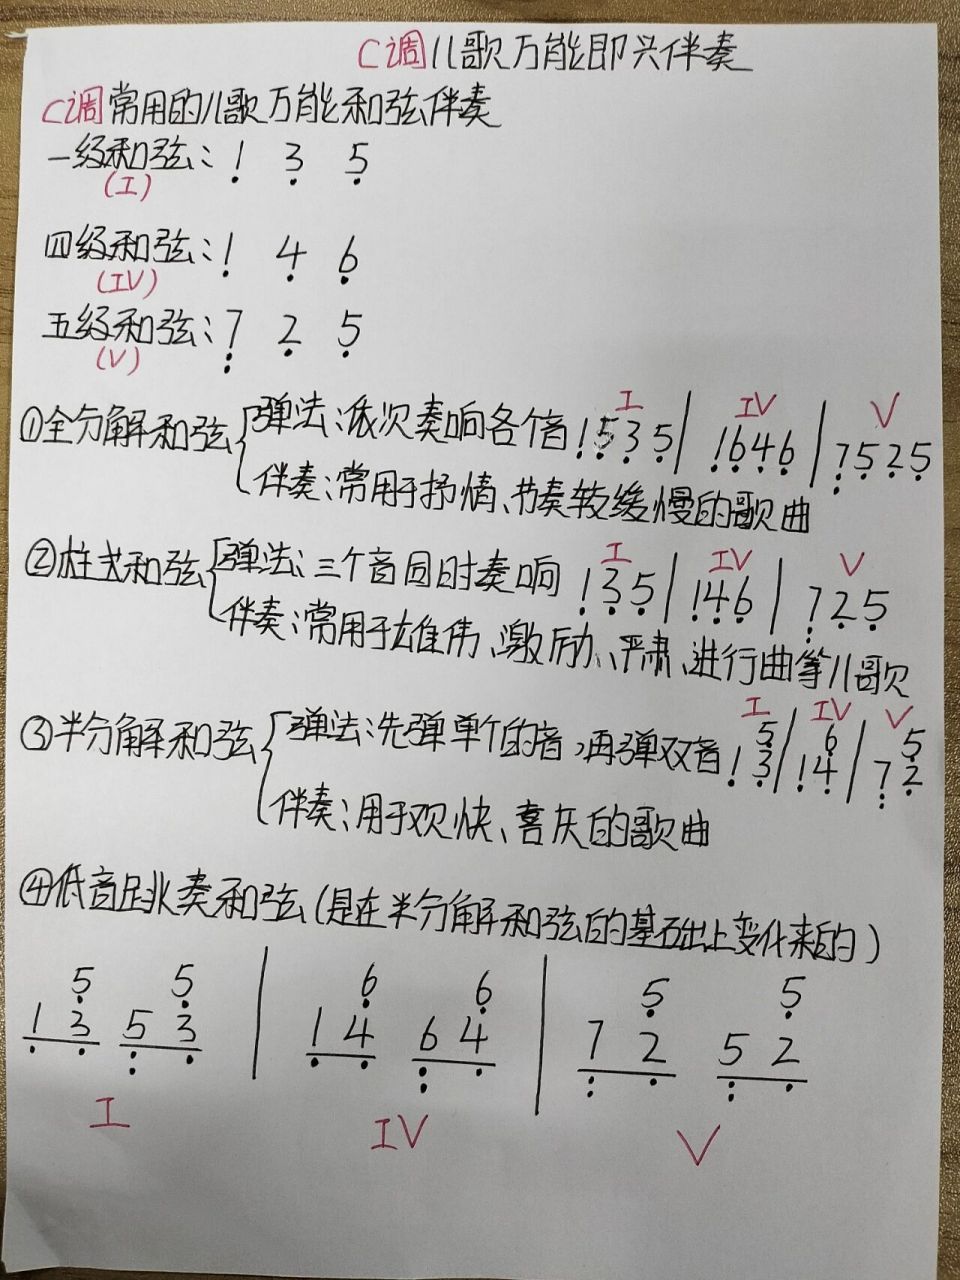 C调儿歌万能即兴伴奏
C调常用的儿歌万能和弦伴奏
一级和弦：1̣ 3̣ 5̣
(I)
四级和弦：1̣ 4̣ 6̣
(IV)
五级和弦：7̣̣ 2̣ 5̣
(V)
I IV V
①全分解和弦{弹法：依次奏响各个音 1̣ 5̣ 3̣ 5̣ | 1̣ 6̣ 4̣ 6̣ | 7̣̣ 5̣ 2̣ 5̣
伴奏：常用于抒情、节奏较缓慢的歌曲
I IV V
②柱式和弦{弹法：三个音同时奏响 1̣ 3̣ 5̣ | 1̣ 4̣ 6̣ | 7̣̣ 2̣ 5̣
伴奏：常用于雄伟、激励、严肃、进行曲等儿歌
I IV V
5̣ 6̣ 5̣
③半分解和弦{弹法：先弹单个的音，再弹双音 1̣ 3̣ | 1̣ 4̣ | 7̣̣ 2̣
伴奏：用于欢快、喜庆的歌曲
④低音跳奏和弦(是在半分解和弦的基础上变化来的)
5̣ 5̣ | 6̣ 6̣ | 5̣ 5̣
1̣ 3̣ 5̣̣ 3̣ | 1̣ 4̣ 6̣̣ 4̣ | 7̣̣ 2̣ 5̣̣ 2̣
I IV V